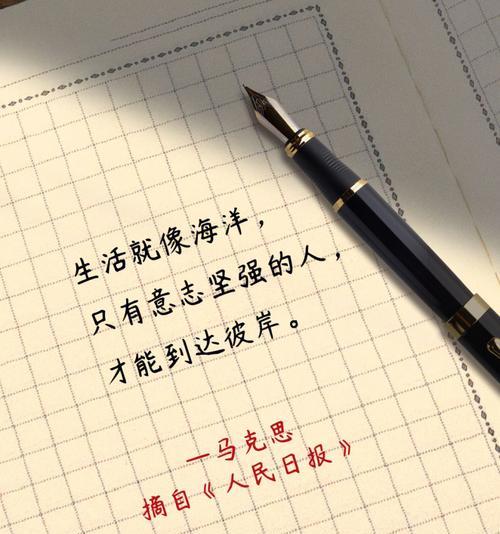 生活就像海洋，
只有意志坚强的人，
才能到达彼岸。
—马克思
摘自《人民日报》